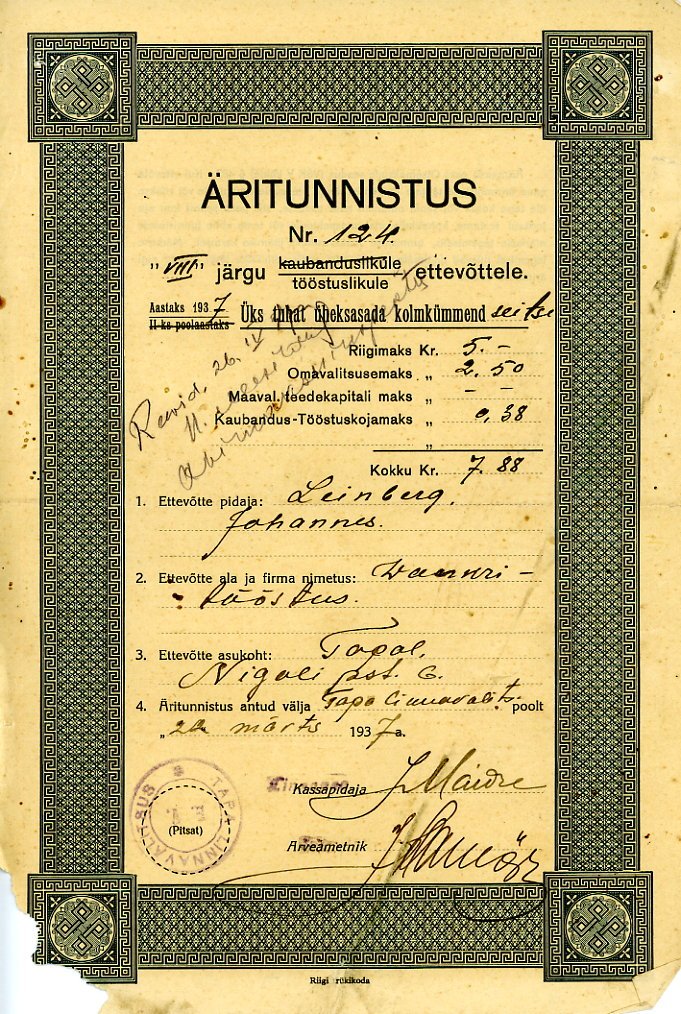 ÄRITUNNISTUS
Nr. 124.
"VIII" järgu kaubanduslikule ettevõttele.
tööstuslikule
Aastaks 1937 Üks tuhat üheksasada kolmkümmend seitse
II-ks poolaastaks
Riigimaks Kr. 5.-
Omavalitsusemaks „ 2.50
Maaval. teedekapitali maks „ - -
Kaubandus-Tööstuskojamaks „ 0,38
„
Kokku Kr. 7.88
Revid. 26. IX
1. Ettevõtte pidaja: Leinberg,
Johannes.
2. Ettevõtte ala ja firma nimetus: Vankri-
tööstus.
3. Ettevõtte asukoht: Tapal,
Nigoli pst. 6.
4. Äritunnistus antud välja Tapa Linnavalits. poolt
märts 1937 a.
Kassapidaja J. Maidre
TAPA LINNAVALITSUS
(Pitsat)
Arveametnik
Riigi trükikoda